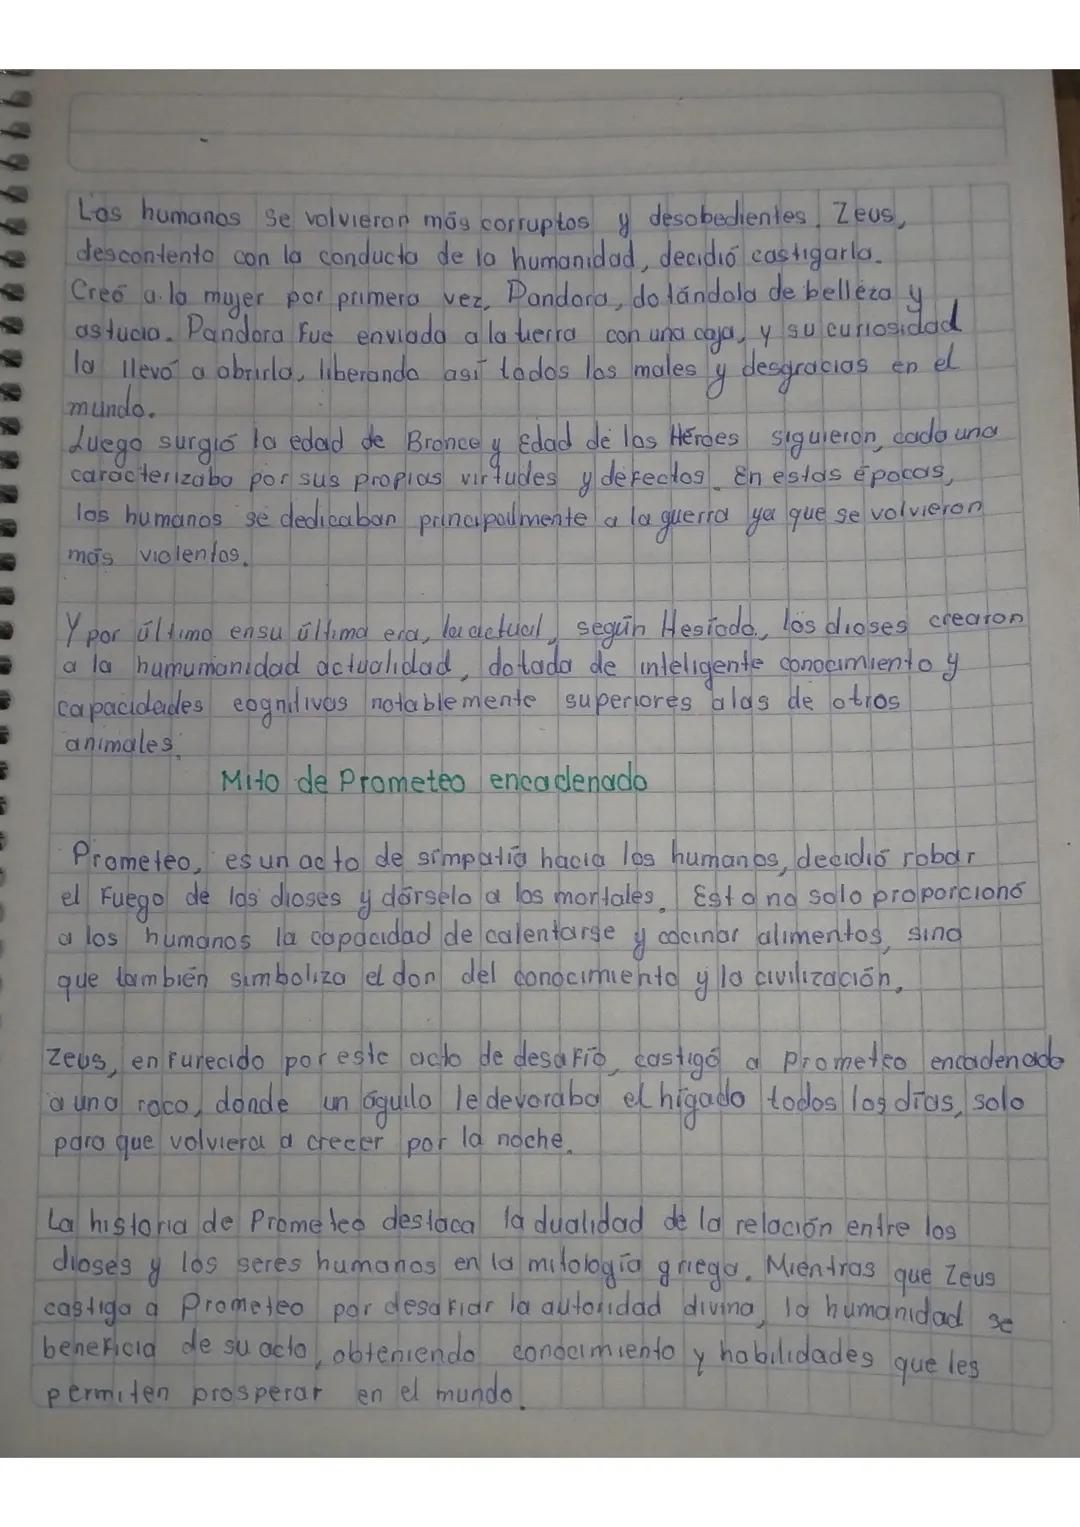 Los humanos se volvieron más corruptos y desobedientes. Zeus,
descontento con la conducta de la humanidad, decidió castigarla.
Creó a la mujer por primera vez, Pandora, dotándola de belleza y
astucia. Pandora fue enviada a la tierra con una caja, y su curiosidad
la llevó a abrirla, liberando así todos los males y desgracias en el
mundo.
Luego surgió la edad de Bronce y Edad de los Héroes siguieron, cada una
caracterizaba por sus propias virtudes y defectos. En estas épocas,
los humanos se dedicaban principalmente a la guerra ya que se volvieron
más violentos.
Y por último en su última era, la actual, según Hesíodo, los dioses crearon
a la humumanidad actualidad, dotada de inteligente conocimiento y
capacidades cognitivas notablemente superiores a las de otros
animales.
Mito de Prometeo encadenado
Prometeo, es un acto de simpatía hacia los humanos, decidió robar
el Fuego de los dioses y dárselo a los mortales. Esto no solo proporcionó
a los humanos la capacidad de calentarse y cocinar alimentos, sino
que también simboliza el don del conocimiento y la civilización.
Zeus, enfurecido por este acto de desafío, castigó a Prometeo encadenado
a una roca, donde un águila le devoraba el hígado todos los días, solo
para que volviera a crecer por la noche.
La historia de Prometeo destaca la dualidad de la relación entre los
dioses y los seres humanos en la mitología griega. Mientras que Zeus
castiga a Prometeo por desafiar la autoridad divina, la humanidad se
beneficia de su acto, obteniendo conocimiento y habilidades que les
permiten prosperar en el mundo.